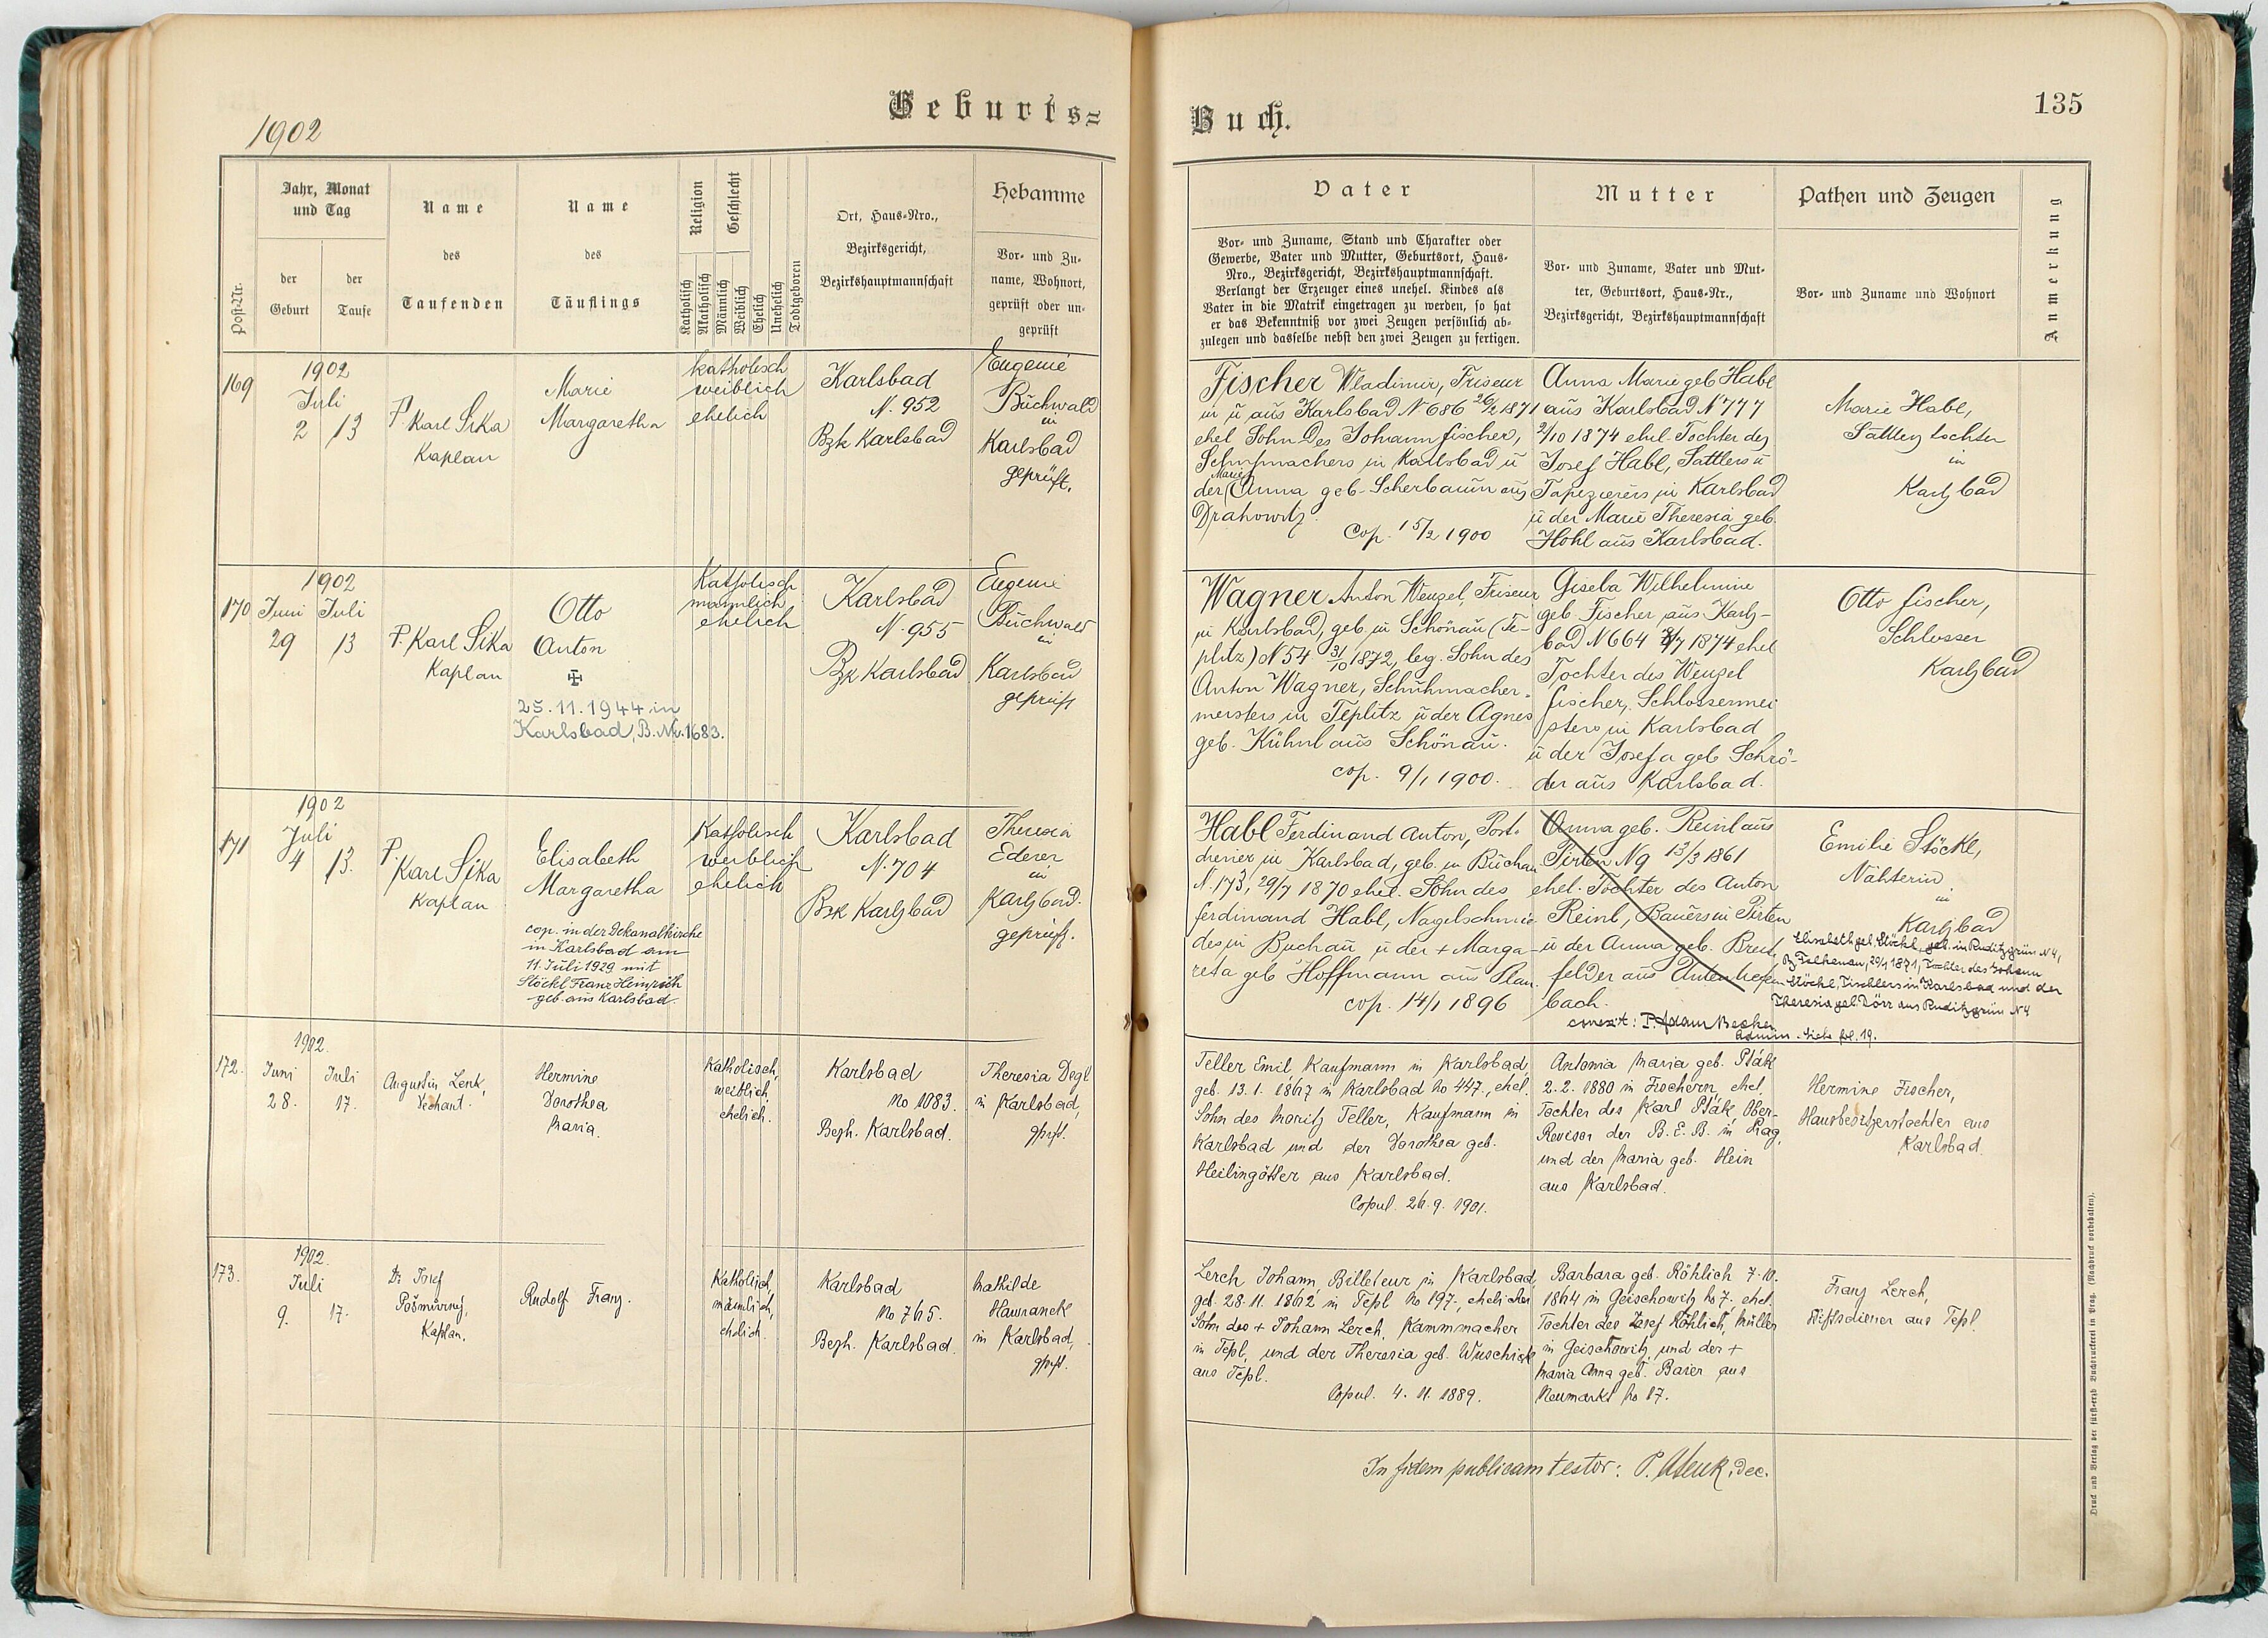 1902
Geburts=
Buch.
135
Post-Nr.
Jahr, Monat
und Tag
der
Geburt
der
Taufe
Name
des
Taufenden
Name
des
Täuflings
Religion
Katholisch
Akatholisch
Geschlecht
Männlich
Weiblich
Ehelich
Unehelich
Todtgeboren
Ort, Haus-Nro.,
Bezirksgericht,
Bezirkshauptmannschaft
Hebamme
Vor- und Zu-
name, Wohnort,
geprüft oder un-
geprüft
Vater
Vor- und Zuname, Stand und Charakter oder
Gewerbe, Vater und Mutter, Geburtsort, Haus-
Nro., Bezirksgericht, Bezirkshauptmannschaft.
Verlangt der Erzeuger eines unehel. Kindes als
Vater in die Matrik eingetragen zu werden, so hat
er das Bekenntniß vor zwei Zeugen persönlich ab-
zulegen und dasselbe nebst den zwei Zeugen zu fertigen.
Mutter
Vor- und Zuname, Vater und Mut-
ter, Geburtsort, Haus-Nr.,
Bezirksgericht, Bezirkshauptmannschaft
Pathen und Zeugen
Vor- und Zuname und Wohnort
Anmerkung
169
1902
Juli
2 13
P. Karl Sika
Kaplan
Marie
Margaretha
katholisch
weiblich
ehelich
Karlsbad
N. 952
Bzk Karlsbad
Eugenie
Buchwald
in
Karlsbad
geprüft.
Fischer Wladimir, Friseur
in u aus Karlsbad N 686 26/2 1871
ehel Sohn des Johann Fischer,
Schuhmachers in Karlsbad u
der Marie Anna geb. Scherbaum aus
Drahowitz.
Cop. 15/2 1900
Anna Marie geb Habl
aus Karlsbad N 777
2/10 1874 ehel. Tochter des
Josef Habl, Sattlers u
Tapezierers in Karlsbad
u der Marie Theresia geb.
Hohl aus Karlsbad.
Marie Habl,
Sattlerstochter
in
Karlsbad
170
1902
Juni Juli
29 13
P. Karl Sika
Kaplan
Otto
Anton
25.11.1944 in
Karlsbad, B. Nr. 1683.
Katholisch
männlich
ehelich
Karlsbad
N. 955
Bzk Karlsbad
Eugenie
Buchwald
in
Karlsbad
geprüft
Wagner Anton Wenzel, Friseur
in Karlsbad, geb. in Schönau (Te-
plitz) N 54 31/10 1872, leg. Sohn des
Anton Wagner, Schuhmacher-
meisters in Teplitz u der Agnes
geb. Kühnl aus Schönau.
cop. 9/1 1900.
Gisela Wilhelmine
geb. Fischer aus Karls-
bad N 664 8/7 1874 ehel
Tochter des Wenzel
Fischer, Schlossermei
sters in Karlsbad
u der Josefa geb Schrö-
der aus Karlsbad.
Otto Fischer,
Schlosser
Karlsbad
171
1902
Juli
4 13.
P.
Karl Sika
Kaplan
Elisabeth
Margaretha
cop. in der Dekanalkirche
in Karlsbad am
11. Juli 1929 mit
Stöckl Franz Heinrich
geb. aus Karlsbad.
Katholisch
weiblich
ehelich
Karlsbad
N. 704
Bzk Karlsbad
Theresia
Ederer
in
Karlsbad.
geprüft.
Habl Ferdinand Anton, Post-
diener in Karlsbad, geb. in Buchau
N. 173, 29/7 1870 ehel. Sohn des
Ferdinand Habl, Nagelschmie-
des in Buchau u der + Marga-
reta geb Hoffmann aus Plan.
cop. 14/1 1896
Anna geb. Reinl aus
Pirten N 9 13/3 1861
ehel. Tochter des Anton
Reinl, Bauers in Pirten
u der Anna geb. Breit
felder aus
bach.
correxit: P. Adam Becher
Admin. Siehe fol. 19.
Emilie Stöckl,
Nähterin
in
Karlsbad
Elisabeth geb. Stöckl, geb. in Ruditzgrün N 4,
Bz Falkenau, 29/1 1871, Tochter des Johann
Stöckl, Tischlers in Karlsbad und der
Theresia geb. Dörr aus Ruditzgrün N 4
172.
1902.
Juni Juli
28. 17.
Augustin Lenk,
Dechant.
Hermine
Dorothea
Maria.
Katholisch,
weiblich,
ehelich.
Karlsbad
No 1083.
Bezh. Karlsbad.
Theresia Degl
in Karlsbad,
gprft.
Teller Emil, Kaufmann in Karlsbad,
geb. 13. 1. 1867 in Karlsbad No 447., ehel.
Sohn des Moritz Teller, Kaufmann in
Karlsbad und der Dorothea geb.
Heilingötter aus Karlsbad.
Copul. 26. 9. 1901.
Antonia Maria geb. Pták
2. 2. 1880 in Fischern, ehel.
Tochter des Karl Pták, Ober-
Revisor der B. E. B. in Prag,
und der Maria geb. Hein
aus Karlsbad.
Hermine Fischer,
Hausbesitzerstochter aus
Karlsbad.
173.
1902.
Juli
9. 17.
Dr Josef
Pošmůrný,
Kaplan.
Rudolf Franz.
Katholisch,
männlich,
ehelich.
Karlsbad
No 765.
Bezh. Karlsbad.
Mathilde
Hawranek
in Karlsbad,
gprft.
Lerch Johann, Billeteur in Karlsbad,
geb. 28. 11. 1862 in Tepl No 197., ehelicher
Sohn des + Johann Lerch, Kammmacher
in Tepl, und der Theresia geb. Wuschick
aus Tepl.
Copul. 4. 11. 1889.
Barbara geb. Röhlich 7. 10.
1864 in Geischowitz No 7., ehel.
Tochter des Josef Röhlich, Müller
in Geischowitz, und der +
Maria Anna geb. Baier aus
Neumarkt No 17.
Franz Lerch,
Stiftsdiener aus Tepl.
In fidem publicam testor: P. ALenk, Dec.
Druck und Verlag der fürst-erzb Buchdruckerei in Prag. (Nachdruck vorbehalten).